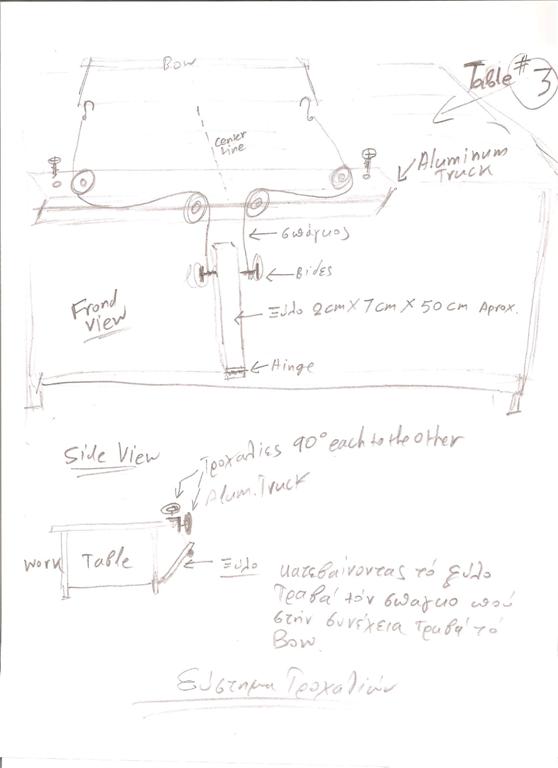 Bow
Table # 3
center
line
Aluminum
Truck
σπάγκος
Βίδες
Frond
view
Ξύλο 2cm X 7cm X 50cm Aprox.
Hinge
Side View
Τροχαλίες 90° each to the other
Alum. Truck
Work
Table
Ξύλο
κατεβαίνοντας τό ξύλο
τραβά τόν σπάγκο πού
στήν συνέχεια τραβά τό
Bow.
Σύστημα Τροχαλιών